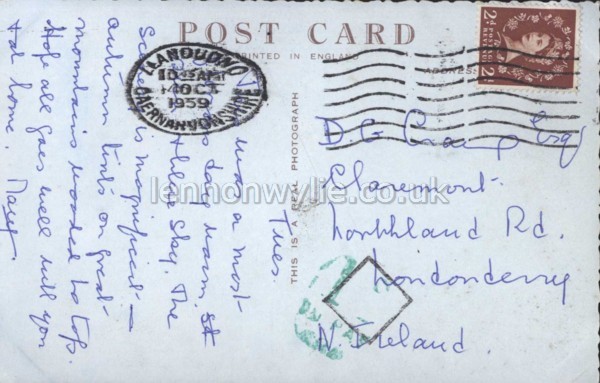 POST CARD
PRINTED IN ENGLAND
ADDRESS
THIS IS A REAL PHOTOGRAPH
LLANDUDNO
10 AM
14 OCT
1959
CAERNARVONSHIRE
POSTAGE
REVENUE
2d
2d
Tues.
was a most
day warm, st
sky. The
is magnificent –
autumn tints on great
mountains wooded to top.
Hope all goes well with you
& at home.
D G Craig Esq
Claremont
Northland Rd.
Londonderry
N. Ireland.
lennonwylie.co.uk